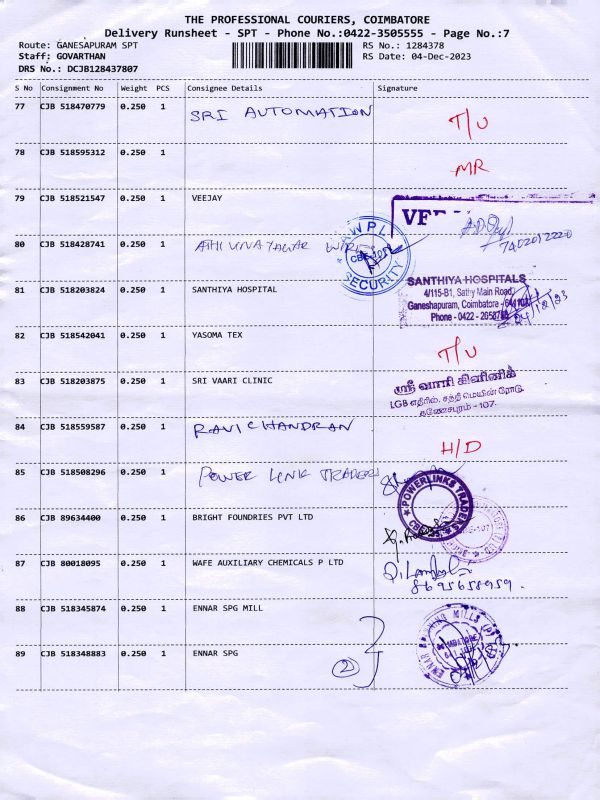 THE PROFESSIONAL COURIERS, COIMBATORE
Delivery Runsheet - SPT - Phone No.:0422-3505555 - Page No.:7
Route: GANESAPURAM SPT RS No.: 1284378
Staff: GOVARTHAN RS Date: 04-Dec-2023
DRS No.: DCJB128437807
S No Consignment No Weight PCS Consignee Details Signature
77 CJB 518470779 0.250 1 SRI AUTOMATION T/U
78 CJB 518595312 0.250 1 MR
79 CJB 518521547 0.250 1 VEEJAY
80 CJB 518428741 0.250 1
SECURITY
81 CJB 518203824 0.250 1 SANTHIYA HOSPITAL
SANTHIYA HOSPITALS
4/115-B1, Sathy Main Road
Ganeshapuram, Coimbatore - 641107
Phone - 0422 -
82 CJB 518542041 0.250 1 YASOMA TEX T/U
83 CJB 518203875 0.250 1 SRI VAARI CLINIC
ஸ்ரீ வாரி கிளினிக்
LGB எதிரில், சத்தி மெயின் ரோடு,
கணேசபுரம் - 107.
84 CJB 518559587 0.250 1 RAVI CHANDRAN H/D
85 CJB 518508296 0.250 1 POWER LINK TRADERS
POWERLINKS TRADERS
86 CJB 89634400 0.250 1 BRIGHT FOUNDRIES PVT LTD
87 CJB 80018095 0.250 1 WAFE AUXILIARY CHEMICALS P LTD
8695658959.
88 CJB 518345874 0.250 1 ENNAR SPG MILL
89 CJB 518348883 0.250 1 ENNAR SPG
2